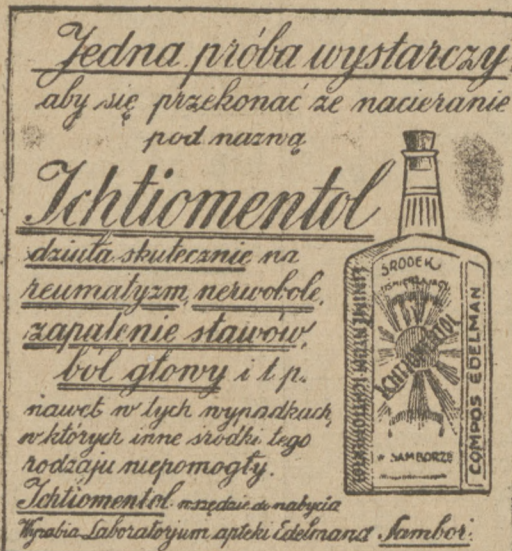 Jedna próba wystarczy
aby się przekonać że nacieranie
pod nazwą
Ichtiomentol
działa skutecznie na
reumatyzm, nerwobole,
zapalenie stawów,
ból głowy i t p.
nawet w tych wypadkach,
w których inne środki tego
rodzaju niepomogły.
Ichtiomentol wszędzie do nabycia
Wyrabia Laboratoryum apteki Edelmana Sambor.
ŚRODEK
ICHTIOMENTOL
W SAMBORZE
COMPOS EDELMAN